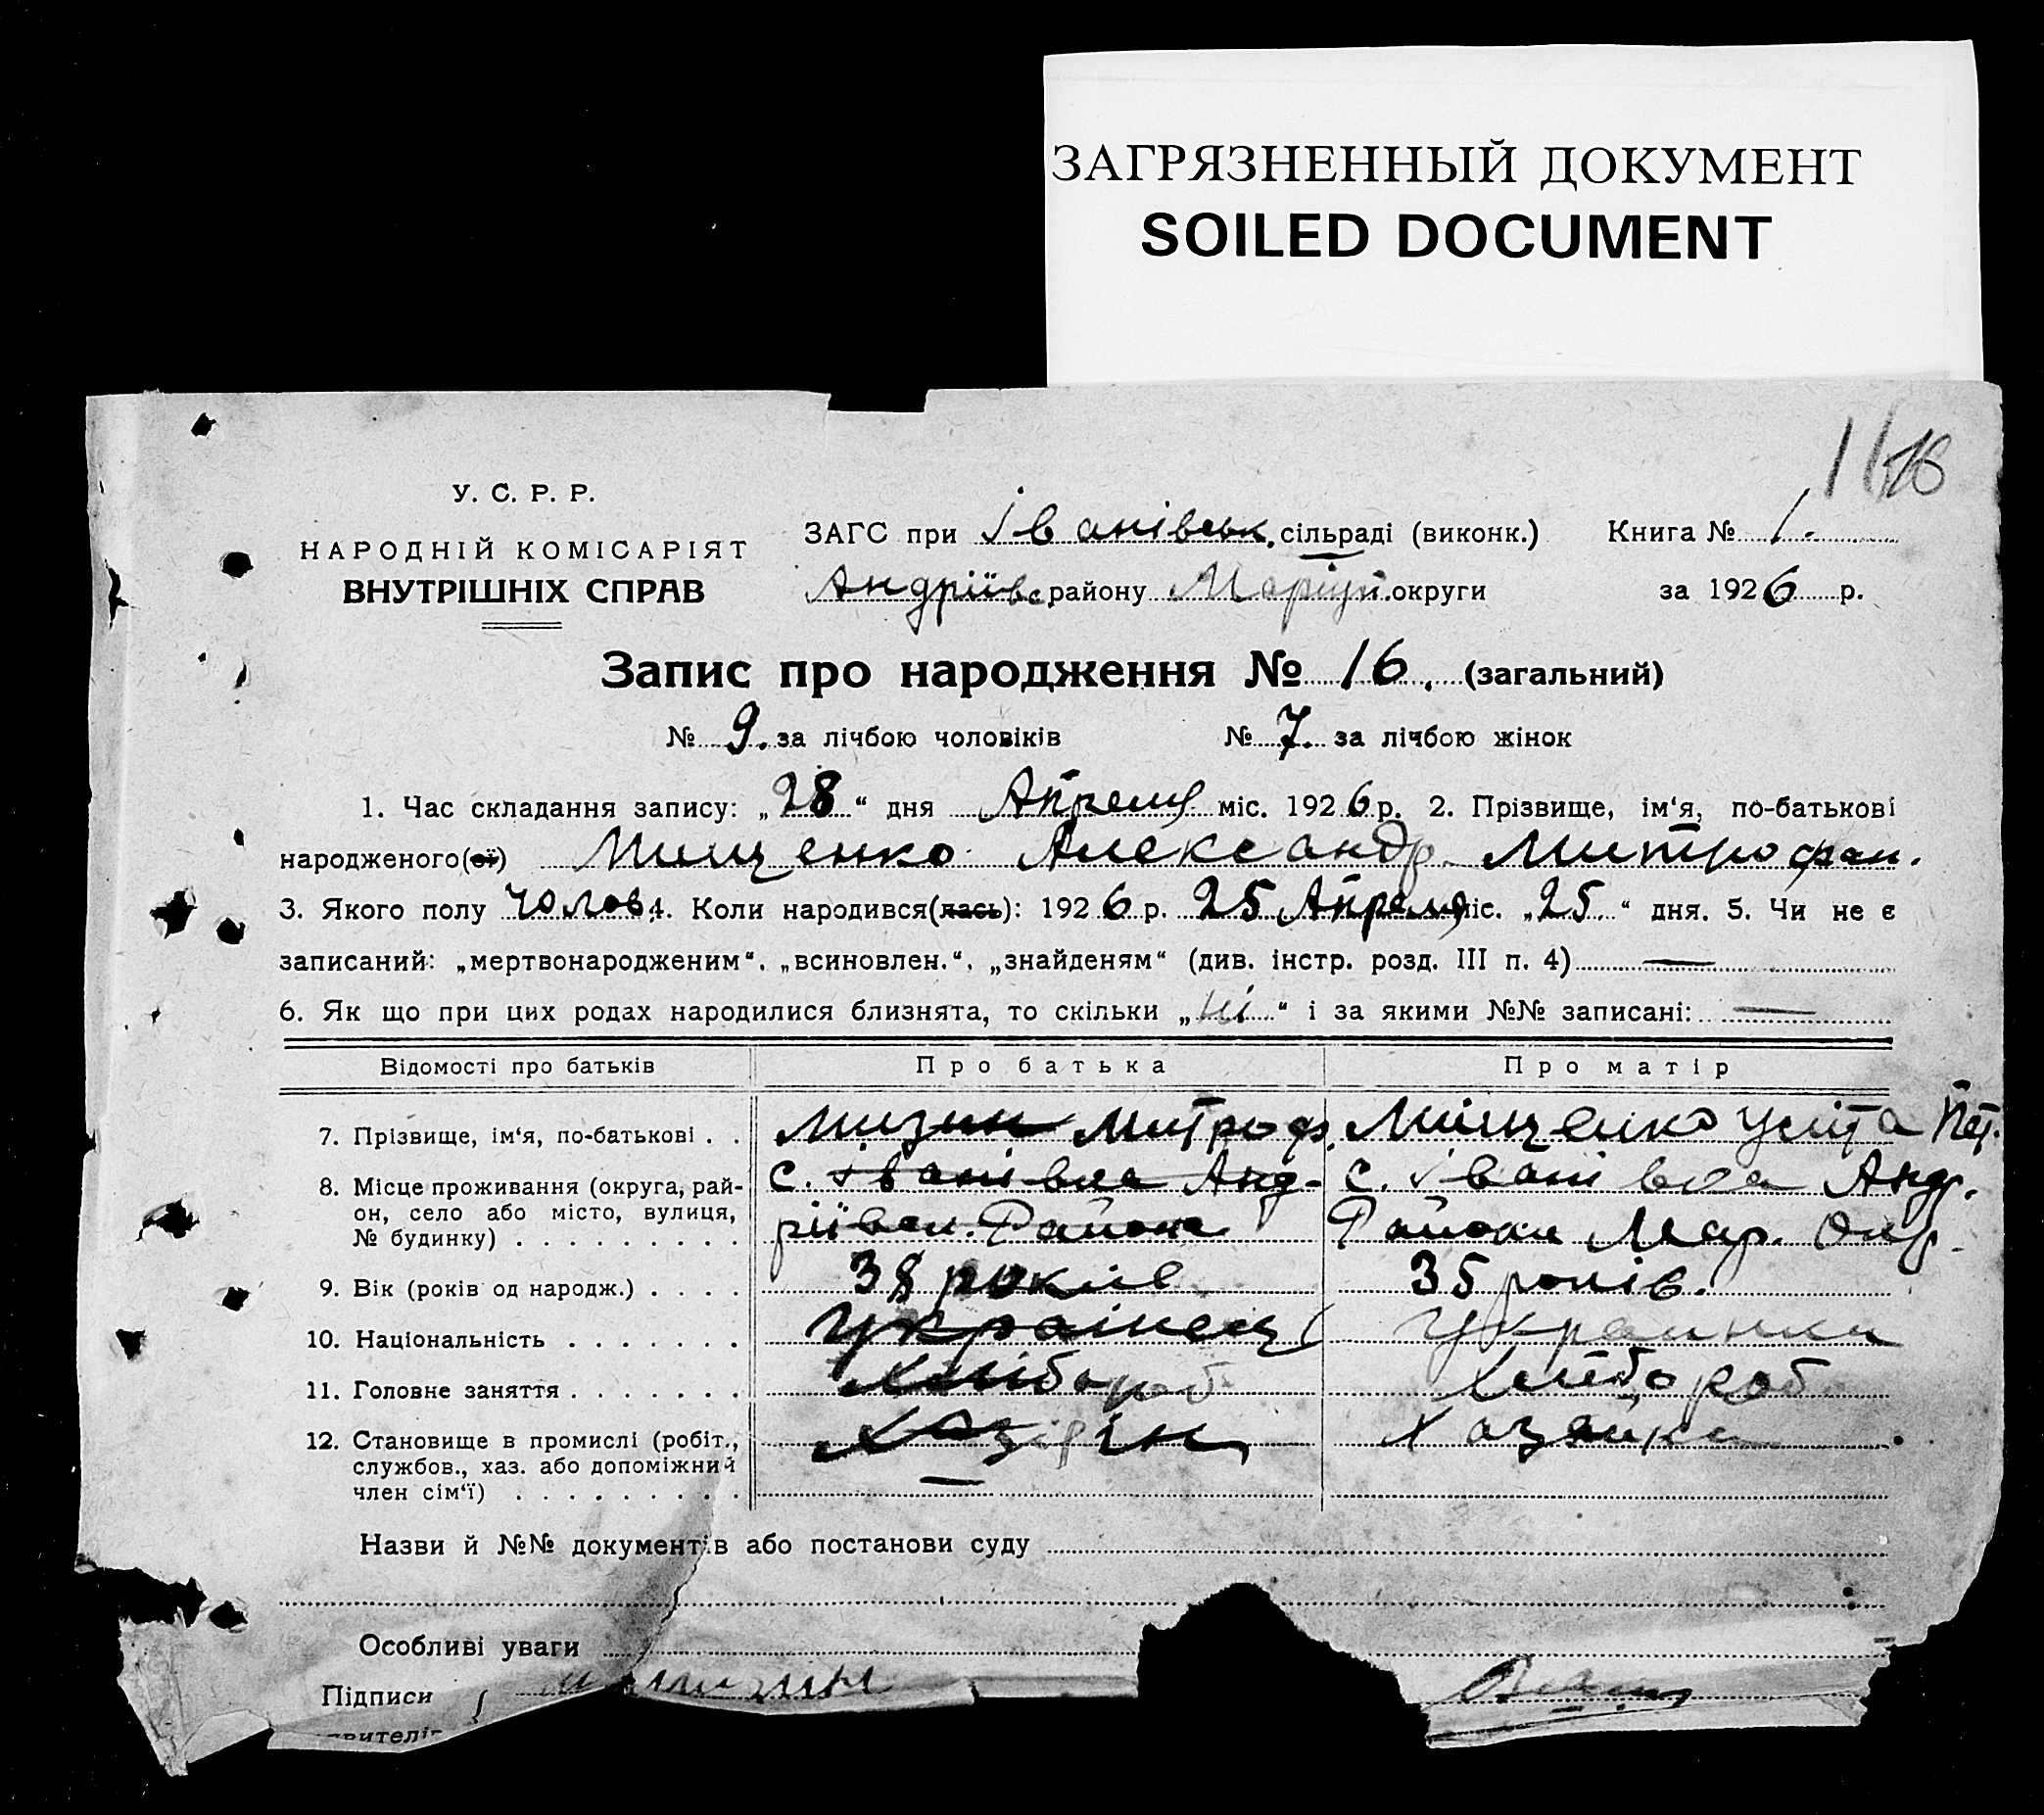 ЗАГРЯЗНЕННЫЙ ДОКУМЕНТ
SOILED DOCUMENT
У. С. Р. Р.
НАРОДНІЙ КОМІСАРІЯТ
ВНУТРІШНІХ СПРАВ
ЗАГС при Іванівськ. сільраді (виконк.) Книга № 1.
Андріївс. району Маріуп. округи за 1926 р.
Запис про народження № 16. (загальний)
№ 9. за лічбою чоловіків № 7. за лічбою жінок
1. Час складання запису: „28“ дня Апреля міс. 1926 р. 2. Прізвище, ім‘я, по-батькові
народженого(ої) Мищенко Александр Митрофан.
3. Якого полу Чолов. 4. Коли народився(лась): 1926 р. 25 Апреля міс. „25“ дня. 5. Чи не є
записаний: „мертвонародженим“, „всиновлен.“, „знайденям“ (див. інстр. розд. III п. 4) —
6. Як що при цих родах народилися близнята, то скільки „ні“ і за якими №№ записані: —
Відомості про батьків Про батька Про матір
7. Прізвище, ім‘я, по-батькові . . Мизин Митроф. Міщенко Уліта Пет.
8. Місце проживання (округа, рай-
он, село або місто, вулиця,
№ будинку) . . . . . . . . .
с. Іванівка Анд-
ріївськ. Района
с. Іванівка Андр.
Района Мар. Окр.
9. Вік (років од народж.) . . . . 38 років 35 років.
10. Національність . . . . . . . Українець Украинка
11. Головне заняття . . . . . . . Хлібороб Хлібороб
12. Становище в промислі (робіт.,
службов., хаз. або допоміжний
член сім‘ї) . . . . . . . . .
Хазяїн Хазяйка
—
Назви й №№ документів або постанови суду
Особливі уваги
Підписи { Мизин